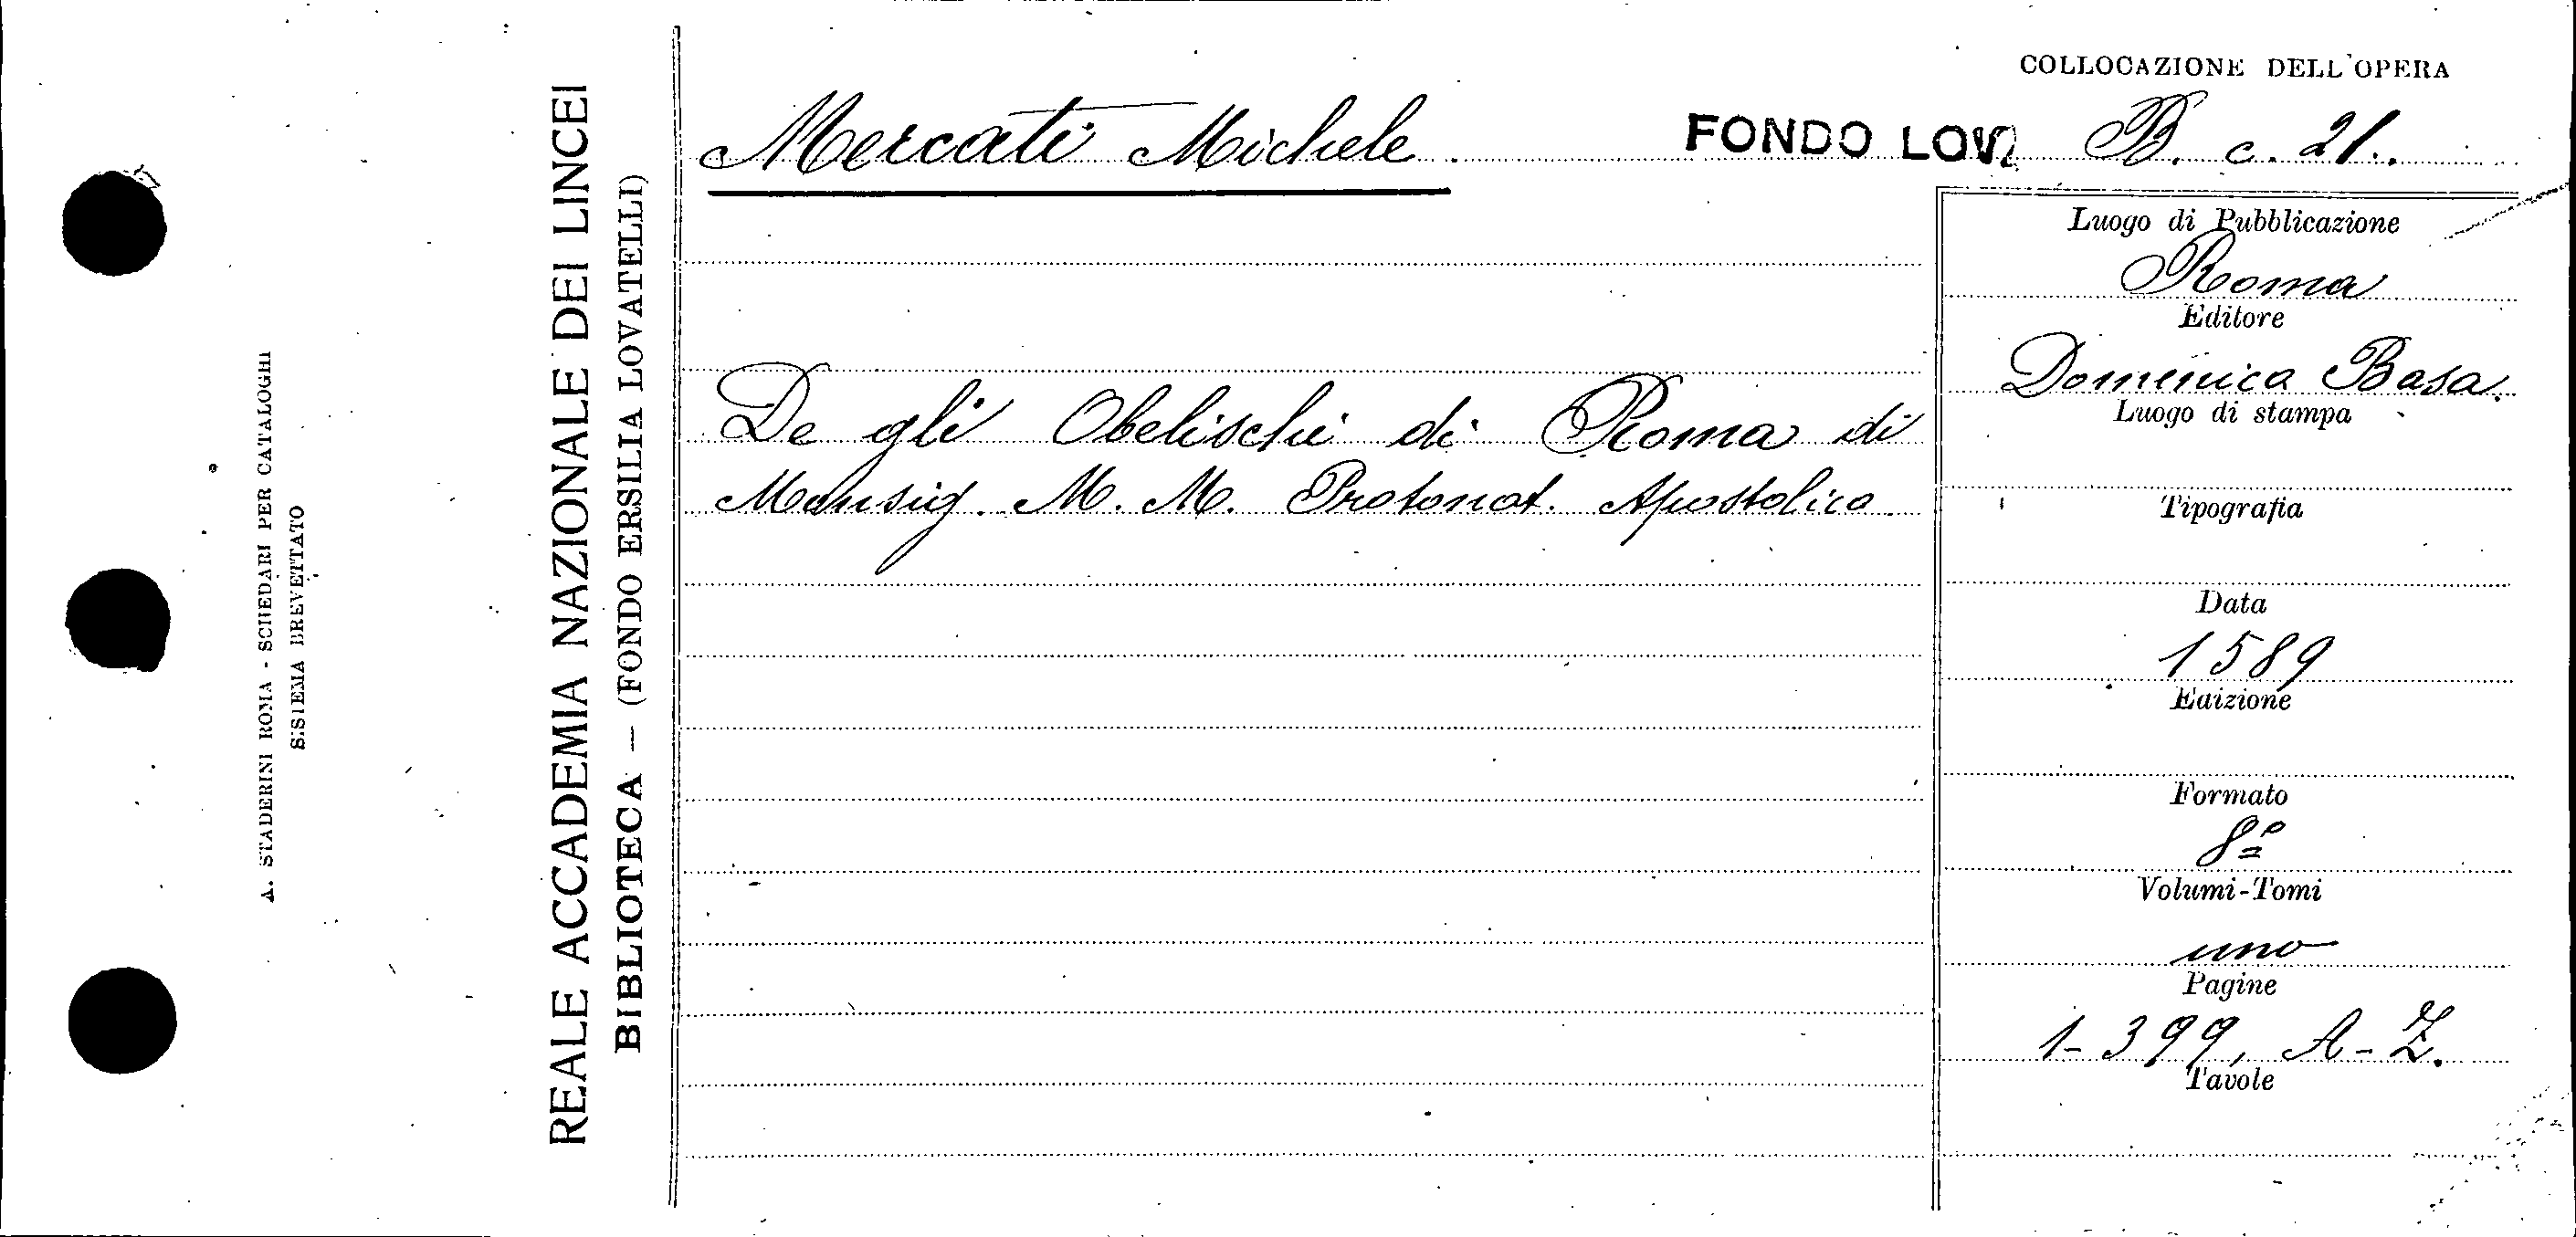 A. STADERINI ROMA - SCHEDARI PER CATALOGHI
SISTEMA BREVETTATO
REALE ACCADEMIA NAZIONALE DEI LINCEI
BIBLIOTECA — (FONDO ERSILIA LOVATELLI)
COLLOCAZIONE DELL'OPERA
Mercati Michele. FONDO LOV. B. c. 21.
De gli Obelischi di Roma di
Monsig. M. M. Protonot. Apostolico
Luogo di Pubblicazione
Roma
Editore
Domenica Basa.
Luogo di stampa
Tipografia
Data
1589
Edizione
Formato
8º
Volumi-Tomi
uno
Pagine
1-399, A-Z.
Tavole